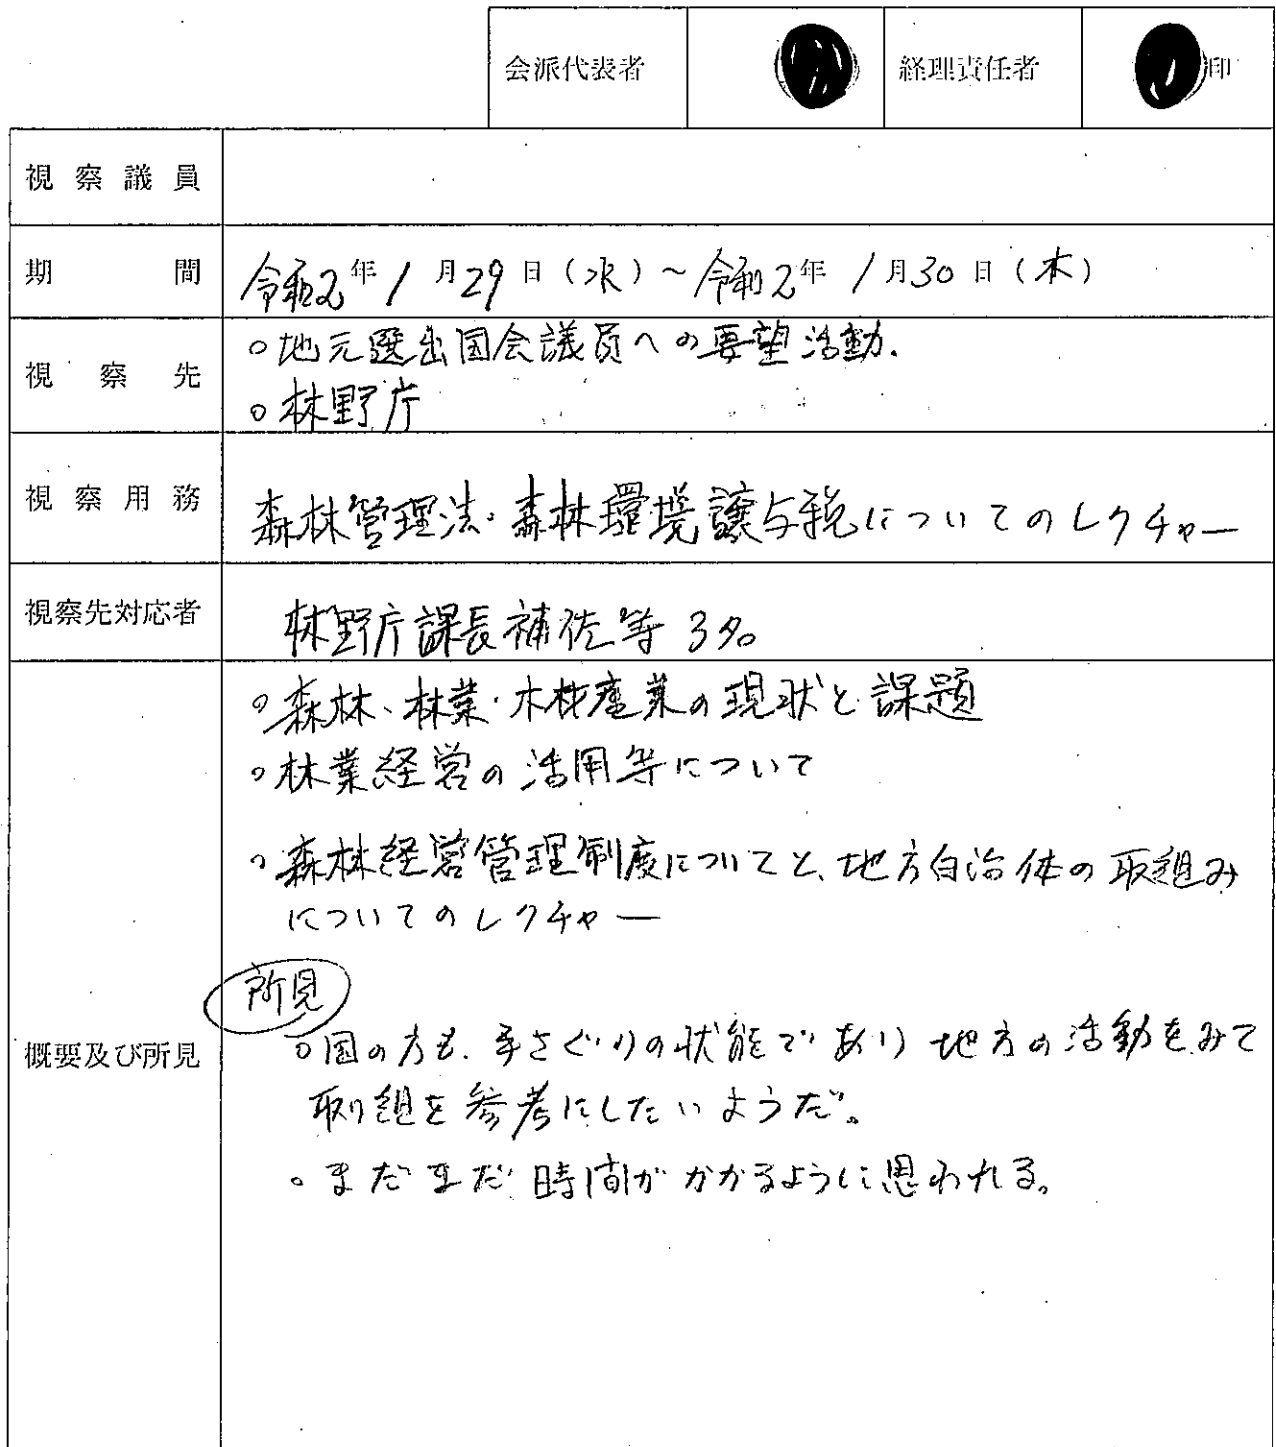 会派代表者 経理責任者 印
視察議員
期間 令和2年1月29日(水)～令和2年1月30日(木)
視察先 ○地元選出国会議員への要望活動.
○林野庁
視察用務 森林管理法・森林環境譲与税についてのレクチャー
視察先対応者 林野庁課長補佐等 3名
○森林、林業・木材産業の現状と課題
○林業経営の活用等について
○森林経営管理制度についてと、地方自治体の取組み
についてのレクチャー
所見
概要及び所見 ○国の方も、手さぐりの状態であり 地方の活動をみて
取り組を参考にしたいようだ。
○まだまだ時間がかかるように思われる。